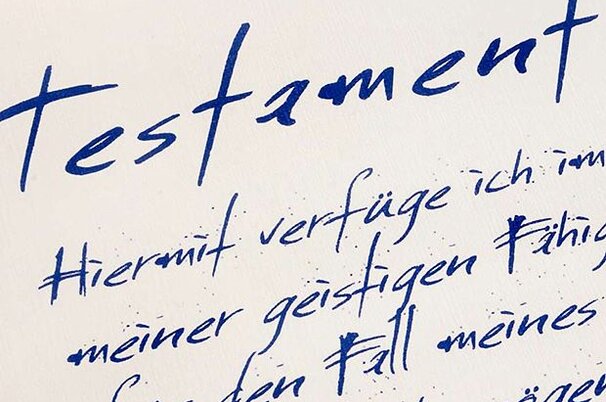 Testament
Hiermit verfüge ich im
meiner geistigen Fähig
den Fall meines